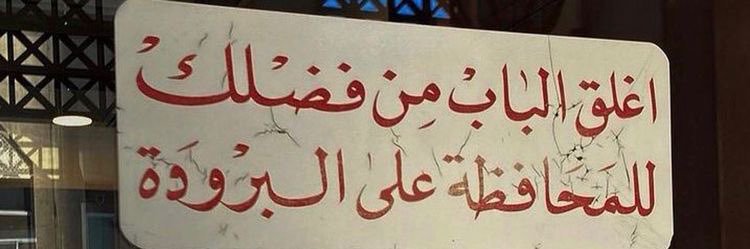 اغلق البابْ مِن فضْلكْ
للمَحَافظة على البرْودَة